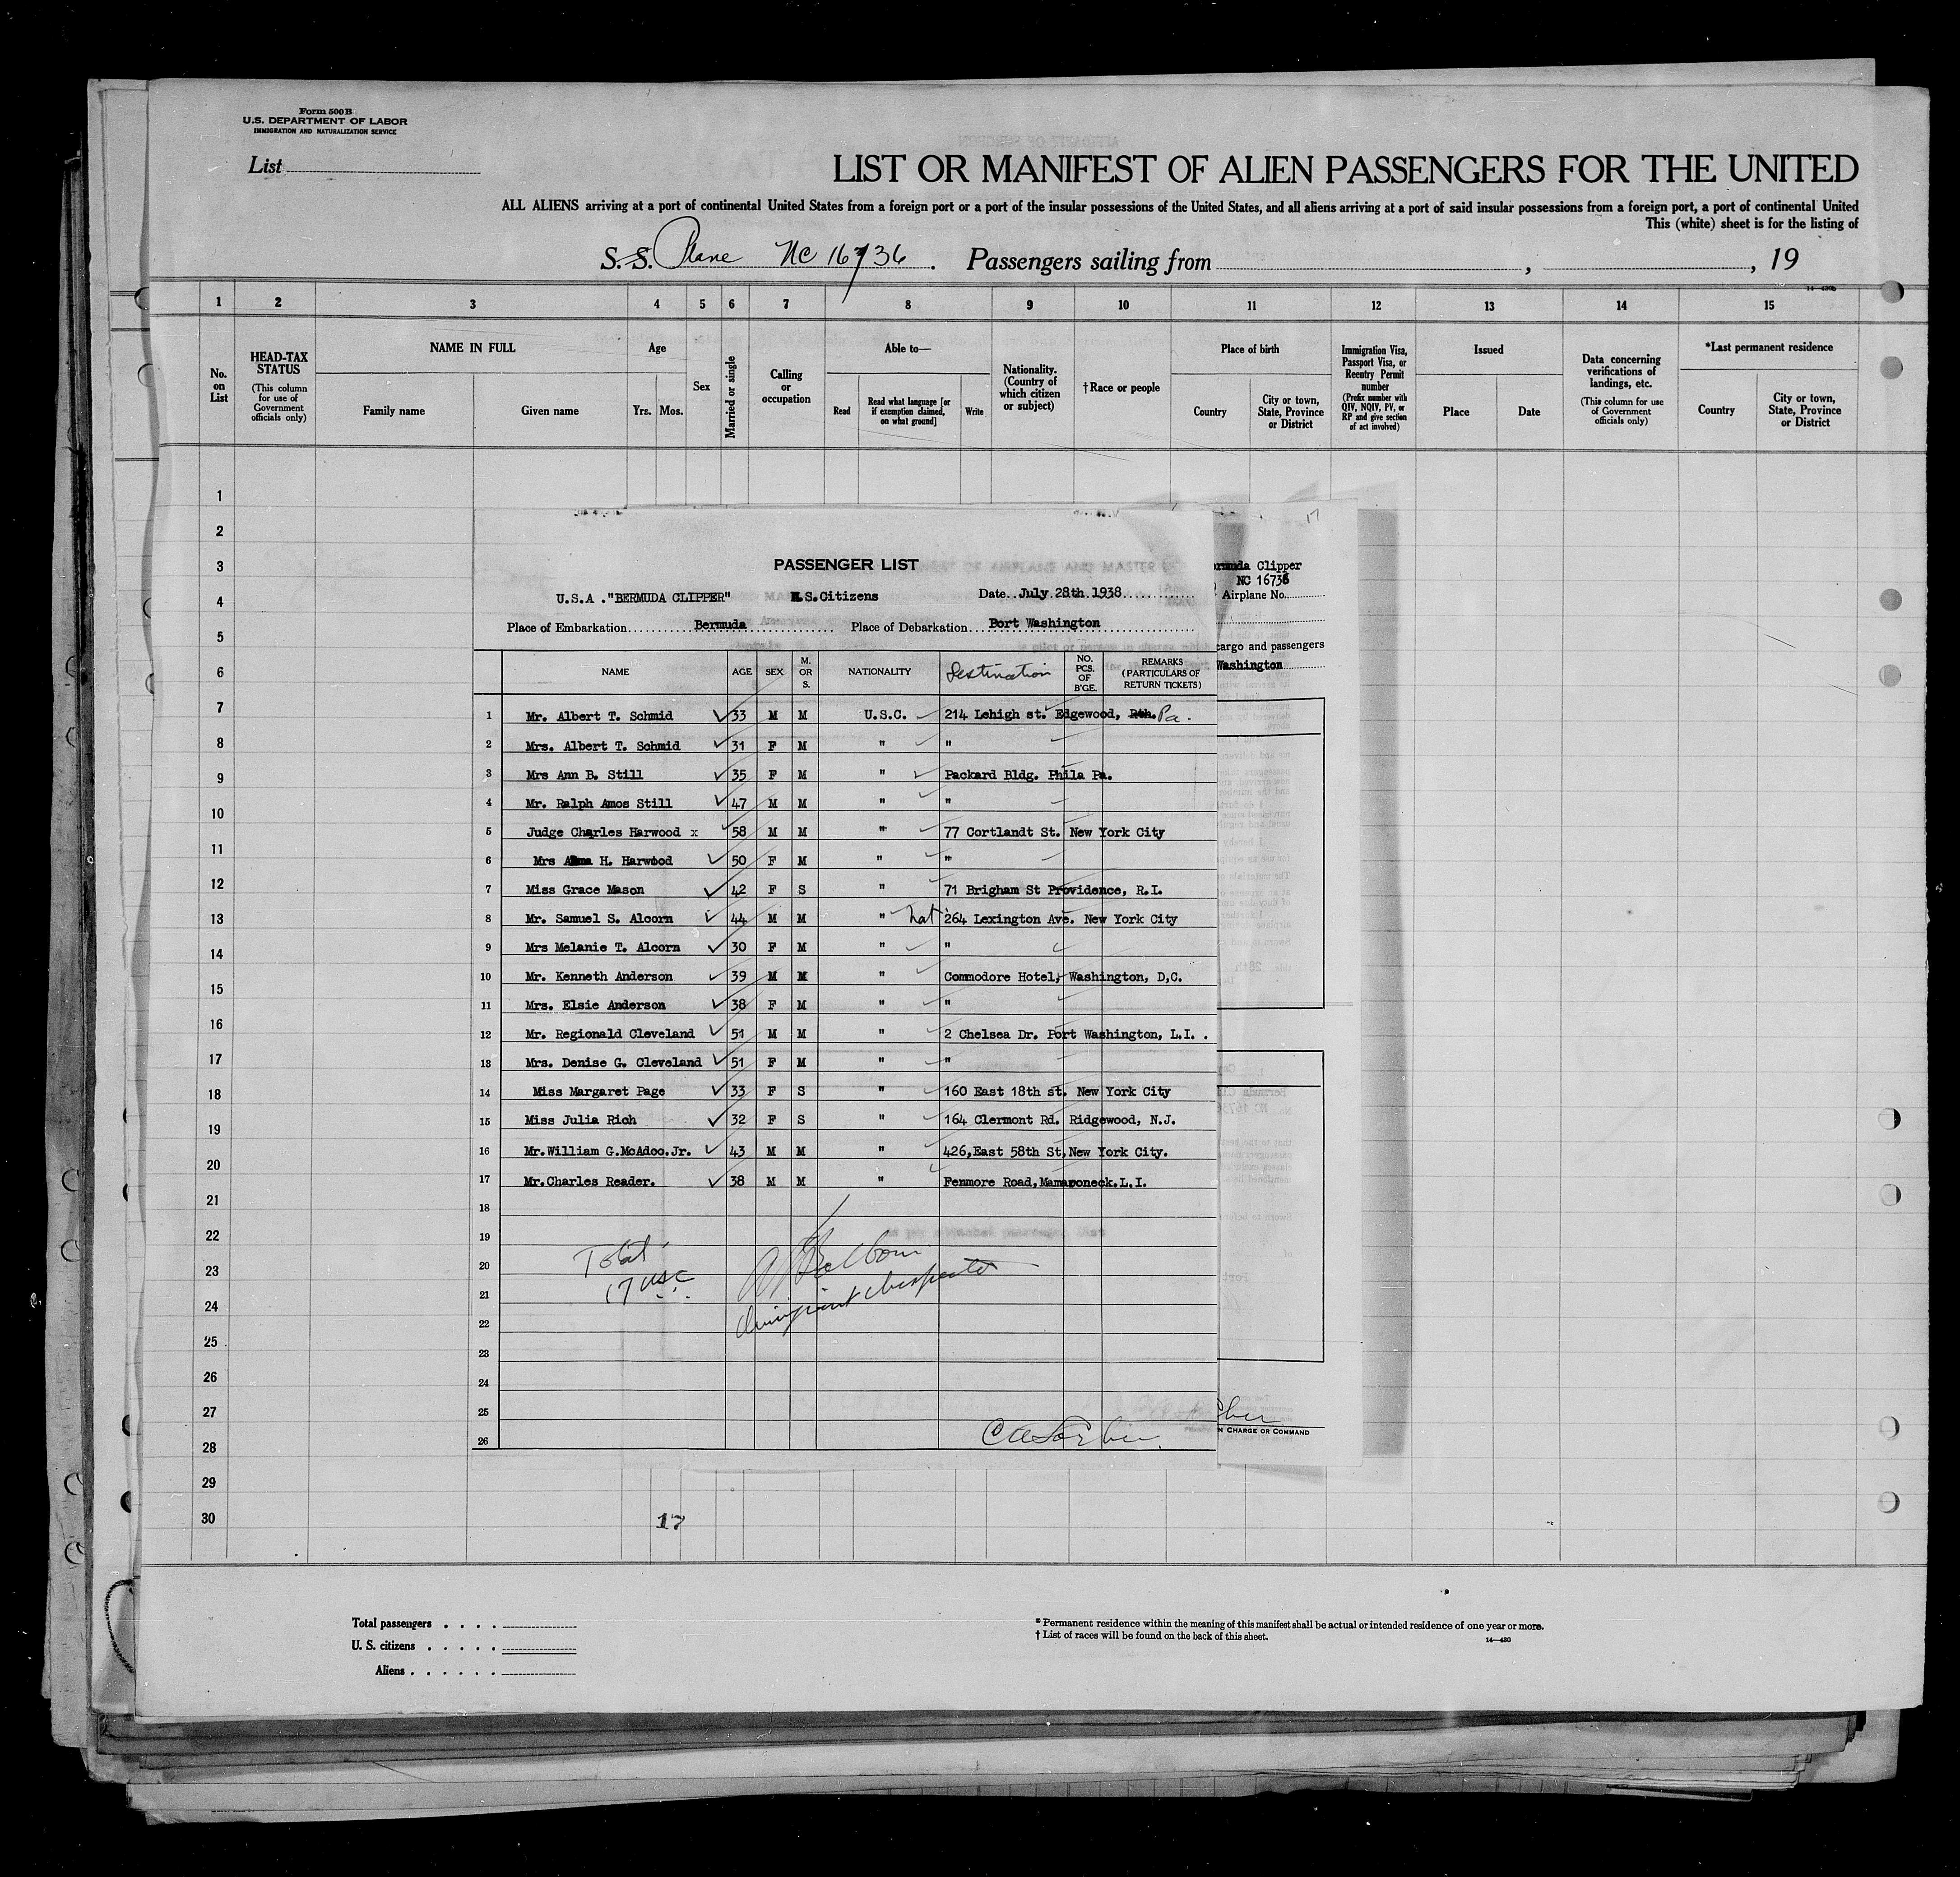 Form 500B
U.S. DEPARTMENT OF LABOR
IMMIGRATION AND NATURALIZATION SERVICE
List
LIST OR MANIFEST OF ALIEN PASSENGERS FOR THE UNITED
ALL ALIENS arriving at a port of continental United States from a foreign port or a port of the insular possessions of the United States, and all aliens arriving at a port of said insular possessions from a foreign port, a port of continental United
This (white) sheet is for the listing of
S.S. Plane NC 16736. Passengers sailing from , , 19
14—430b
1 2 3 4 5 6 7 8 9 10 11 12 13 14 15
No. on List
HEAD-TAX STATUS (This column for use of Government officials only)
NAME IN FULL
Family name Given name
Age
Yrs. Mos.
Sex
Married or single
Calling or occupation
Able to—
Read
Read what language [or if exemption claimed, on what ground]
Write
Nationality. (Country of which citizen or subject)
†Race or people
Place of birth
Country
City or town, State, Province or District
Immigration Visa, Passport Visa, or Reentry Permit number (Prefix number with QIV, NQIV, PV, or RP and give section of act involved)
Issued
Place Date
Data concerning verifications of landings, etc. (This column for use of Government officials only)
*Last permanent residence
Country
City or town, State, Province or District
1
2
3
4
5
6
7
8
9
10
11
12
13
14
15
16
17
18
19
20
21
22
23
24
25
26
27
28
29
30
17
PASSENGER LIST
U.S.A ."BERMUDA CLIPPER" U.S.Citizens Date..July 28th 1938
Place of Embarkation Bermuda Place of Debarkation Port Washington
NAME AGE SEX M. OR S. NATIONALITY Destination NO. PCS. OF B'GE. REMARKS (PARTICULARS OF RETURN TICKETS)
1 Mr. Albert T. Schmid 33 M M U.S.C. 214 Lehigh st. Edgewood, Pa.
2 Mrs. Albert T. Schmid 31 F M " "
3 Mrs Ann B. Still 35 F M " Packard Bldg. Phila Pa.
4 Mr. Ralph Amos Still 47 M M " "
5 Judge Charles Harwood x 58 M M " 77 Cortlandt St. New York City
6 Mrs H. Harwood 50 F M " "
7 Miss Grace Mason 42 F S " 71 Brigham St Providence, R.I.
8 Mr. Samuel S. Alcorn 44 M M " nat 264 Lexington Ave. New York City
9 Mrs Melanie T. Alcorn 30 F M " "
10 Mr. Kenneth Anderson 39 M M " Commodore Hotel, Washington, D,C.
11 Mrs. Elsie Anderson 38 F M " "
12 Mr. Regionald Cleveland 51 M M " 2 Chelsea Dr. Port Washington, L.I. .
13 Mrs. Denise G. Cleveland 51 F M " "
14 Miss Margaret Page 33 F S " 160 East 18th st. New York City
15 Miss Julia Rich 32 F S " 164 Clermont Rd. Ridgewood, N.J.
16 Mr.William G.McAdoo.Jr. 43 M M " 426,East 58th St,New York City.
17 Mr.Charles Reader. 38 M M " Fenmore Road,Mamaroneck.L.I.
18
19
20
21
22
23
24
25
26
Total
17 USC
17
Clipper
NC 16736
Airplane No.
cargo and passengers
Washington
CHARGE OR COMMAND
Total passengers
U. S. citizens
Aliens
* Permanent residence within the meaning of this manifest shall be actual or intended residence of one year or more.
† List of races will be found on the back of this sheet.
14—430